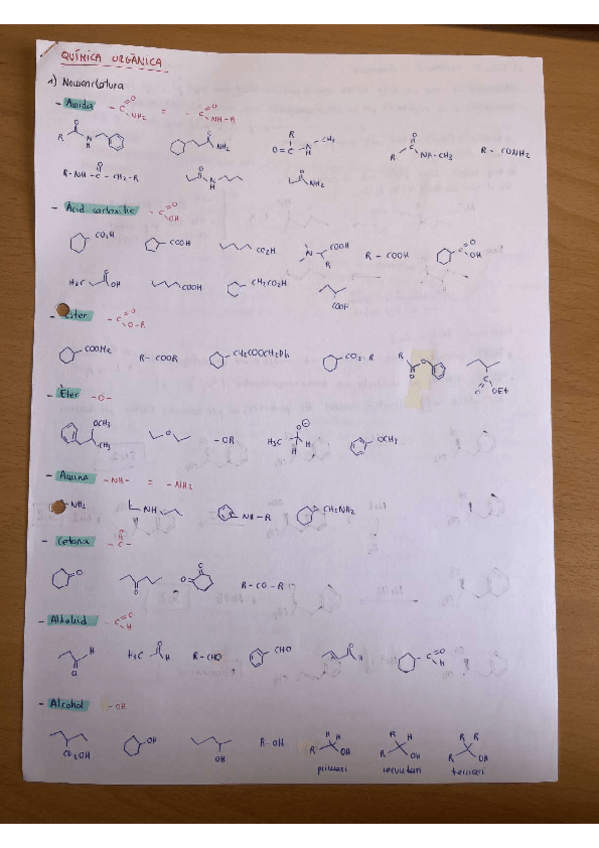 QUÍMICA ORGÀNICA
1) Nomenclatura
- Amida - C O NH2 = - C O NH-R
R O N H O NH2 R O=C-N-CH3 H R C O NH-CH3 R-CONH2
R-NH-C-CH2-R O O N H O NH2
- Àcid carboxílic - C O OH
CO2H COOH CO2H N COOH R R-COOH C O OH
H3C O OH COOH CH2CO2H COOH
- Èster - C O O-R
COOMe R-COOR CH2COOCH2Ph CO2-R R O O C O OEt
- Èter -O-
OCH3 CH3 O -OR H3C O H H OCH3
- Amina -NH- = -NH2
-NH2 NH NH-R CH2NH2
- Cetona O - C -
O O O R-CO-R
- Aldehid - C O H
H O H3C O H R-CHO CHO O H C O H
- Alcohol -OH
CH2OH OH OH R-OH R H H OH R R H OH R R R OH
primari secundari terciari